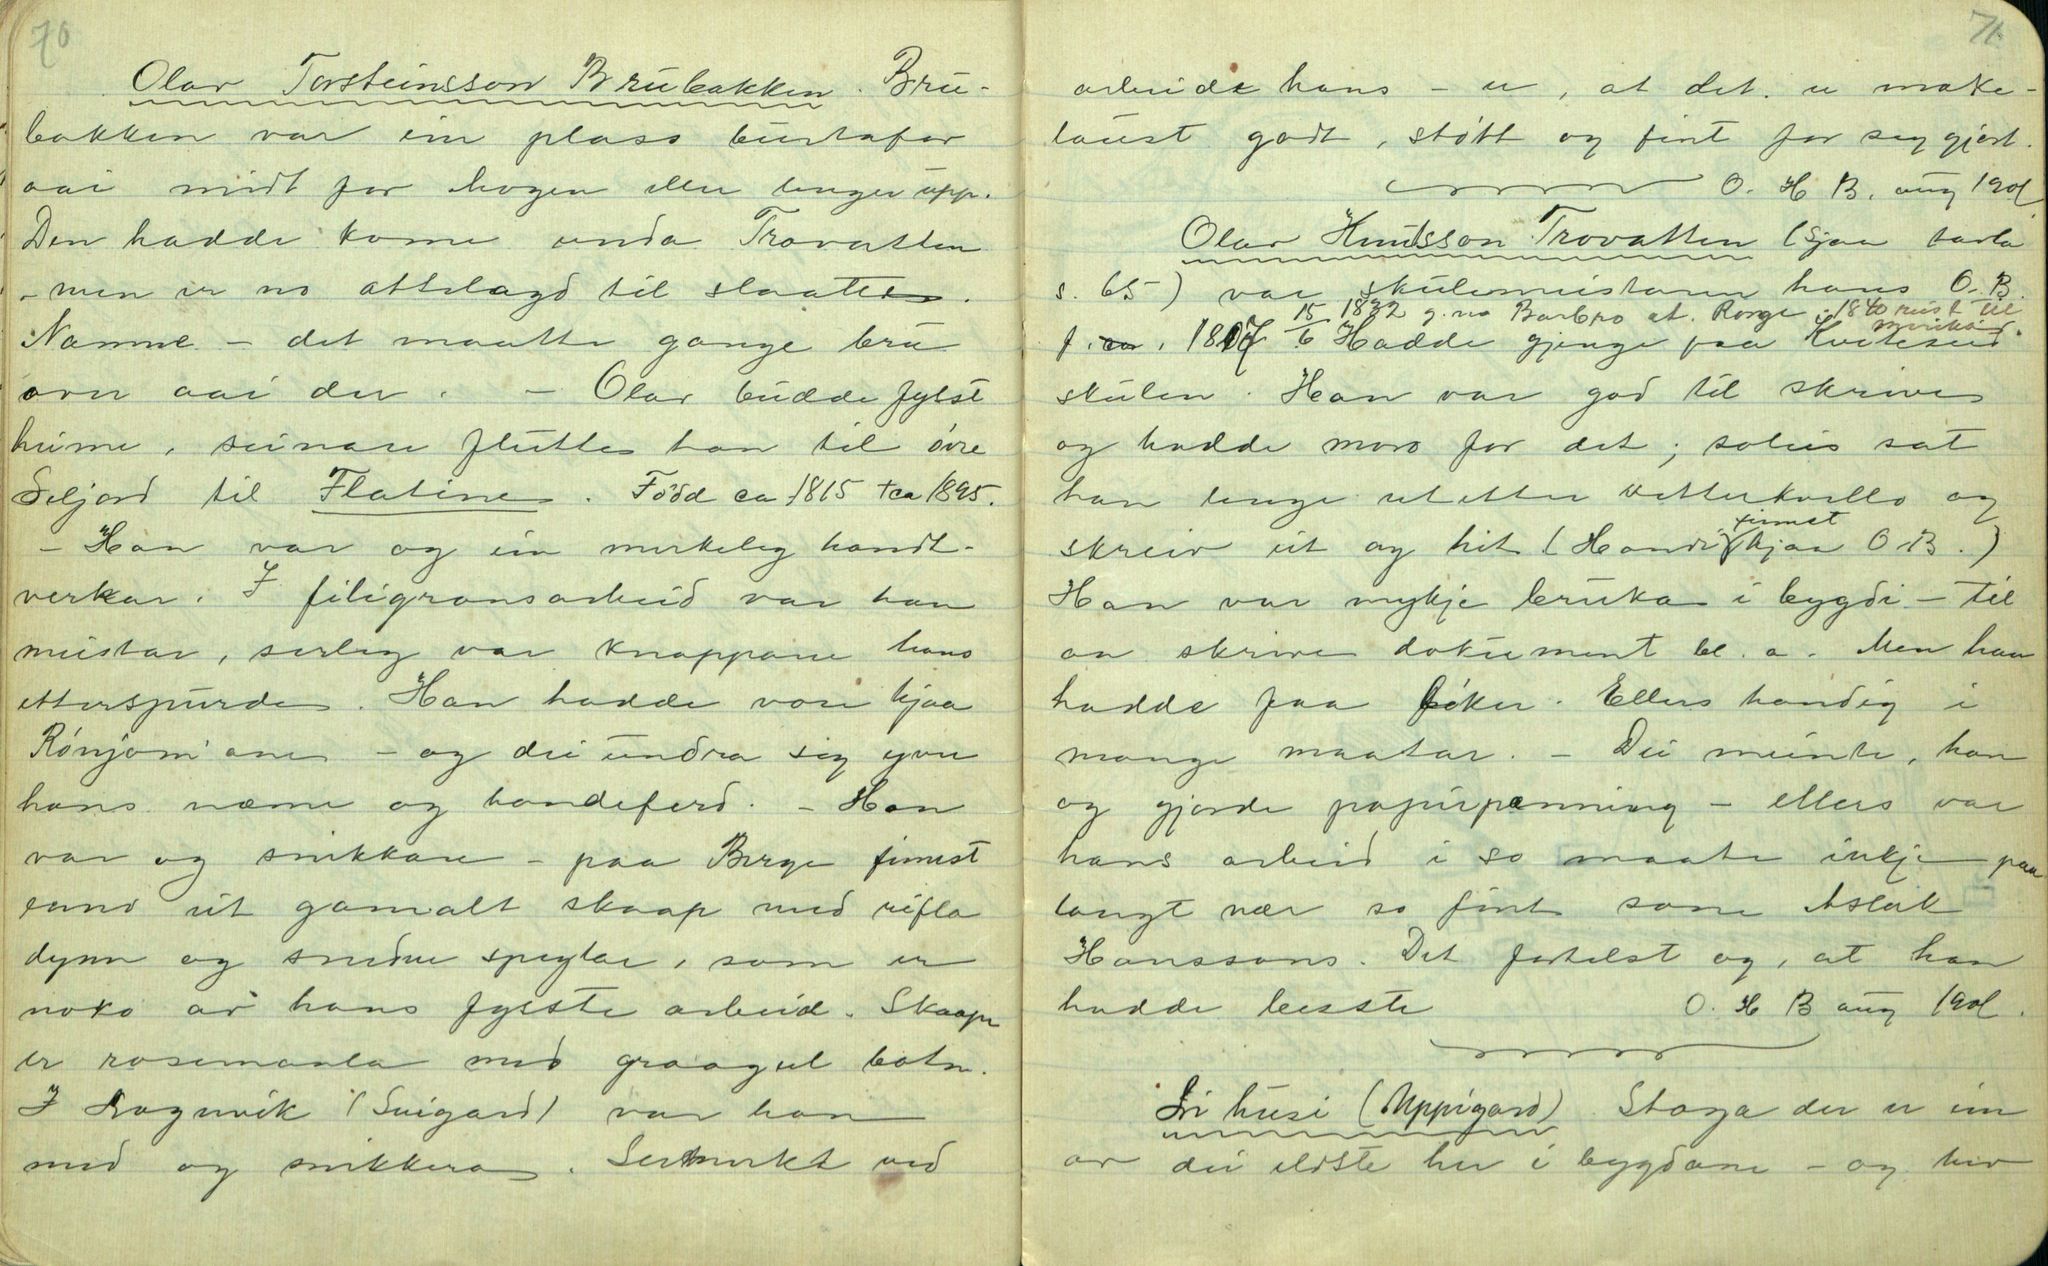 70
Olav Torsteinsson Brubakken. Bru-
bakken var ein plass burtafor
aai midt for haugen eller lenger upp.
Den hadde kome unda Trovatten
- men er no attelagd til slaatte.
Namne - det maatte gange bru
over aai der. - Olav budde fyrst
heime, seinare flutte han til övre
Seljord til Flatine. Född ca 1815 † ca 1895.
- Han var og ein merkeleg handt-
verkar. I filigransarbeid var han
meistar, serleg var knappane hans
etterspurde. Han hadde vore hjaa
Rónjom'ane - og dei undra seg yver
hans næme og handeferd. - Han
var og snikkare - paa Berge finnest
enno eit gamalt skaap med rifla
dyrr og snedne speglar, som er
noko av hans fyrste arbeid. Skaape
er rosemaala med graagul botn.
IRagnvik (Suigard) var han
med og snikkera. Sermerkt ved
71
arbeide hans - er, at det er make-
laust godt, stött og fint for seg gjort.
O. H B. aug 1901
Olav Knutsson Trovatten (sjaa tavla
s. 65) var skulemeistaren hans O. B.
15/6 1832 g. m. Barbro at. Berge, 1840 reist til Merika.
f. ca. 1807 Hadde gjenge paa Kviteseid
skulen. Han var god til skrive
og hadde moro for det; soleis sat
han lenge ut etter vetterkvelds og
skreiv eit og hit (Handi finnst hjaa O.B.)
Han var mykje bruka i bygdi - til
an skrive dokument bl. a. Men han
hadde faa böker. Ellers handig i
mange maatar. - Dei meinte, han
og gjorde papirpenning - ellers var
hans arbeid i so maate inkje paa
langt nær so fint som Aslak
Hanssons. Det fortelst og, at han
hadde beste O. H B aug 1901.
Li husi (Uppigard). Stoga der er ein
av dei eldste her i bygdane - og hev